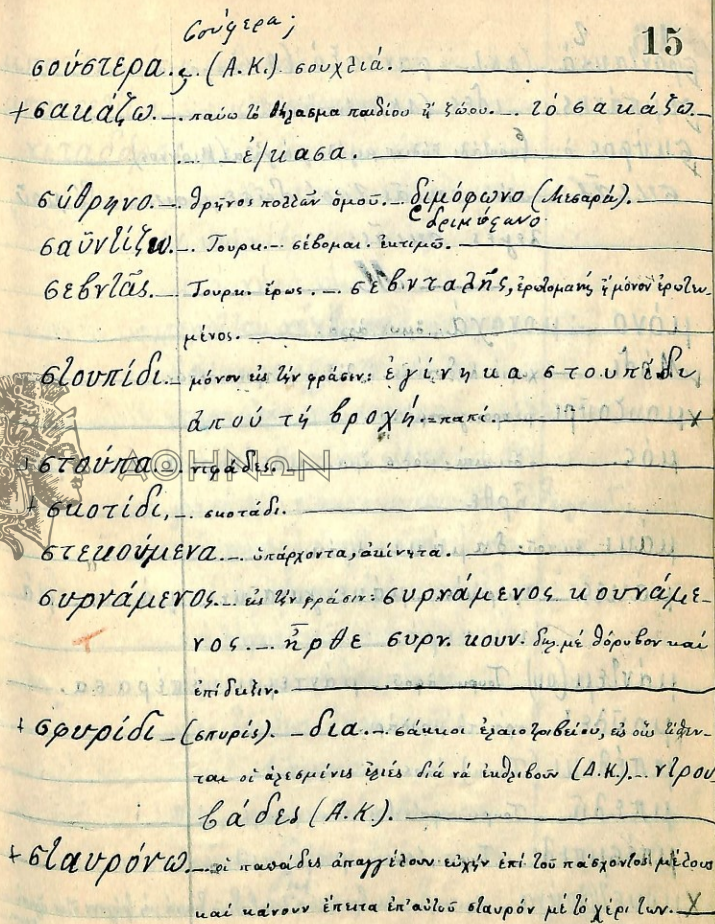 σούφερα;
15
σούστερα.; (Α.Κ.) σουχλιά.
+ σακάζω. παύω τὸ θήλασμα παιδίου ἢ ζώου. τὸ σακάζω.
ἐ/κασα.
σύθρηνο. θρῆνος πολλῶν ὁμοῦ. διμόφωνο (Μεσαρά).
σαϋντίζω. Τουρκ. σέβομαι. ἐκτιμῶ.
σεβντᾶς. Τουρκ. ἔρως. σεβνταλῆς, ἐρωτομανής ἢ μόνον ἐρωτευ-
μένος.
στουπίδι. μόνον εἰς τὴν φράσιν: ἐγίνηκα στουπίδι
ἀπού τὴ βροχή. παπί. x
+ στούπα. νιφάδες.
ΑΘΗΝΩΝ
+ σκοτίδι, σκοτάδι.
στεκούμενα. ὑπάρχοντα, ἀκίνητα.
συρνάμενος. εἰς τὴν φράσιν: συρνάμενος κουνάμε-
νος. ἦρθε συρν. κουν. δηλ. μέ θόρυβον καί
ἐπίδειξιν.
+ σφυρίδι (σπυρίς). -δια. σάκκοι ἐλαιοτριβείου, εἰς οὓς τίθεν-
ται οἱ ἀλεσμένες ἐλιές διά νά ἐκθλιβοῦν (Α.Κ.). ντρου
βάδες (Α.Κ.).
+ σταυρόνω. οἱ παπάδες ἀπαγγέλουν εὐχήν ἐπί τοῦ πάσχοντος μέλους
καί κάνουν ἔπειτα ἐπ' αὐτοῦ σταυρόν μέ τό χέρι των. x